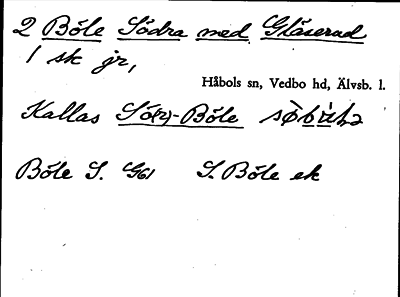 2 Böle Södra med Gläserud
1 sk jr,
Håbols sn, Vedbo hd, Älvsb. l.
Kallas Sö(r)-Böle
Böle S. G61 S. Böle ek